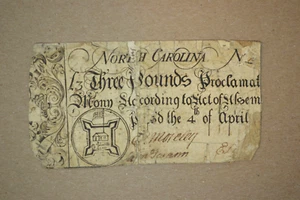 NORTH CAROLINA N
£3 Three Pounds Proclamat
Mony According to Act of Assem
d the 4th of April